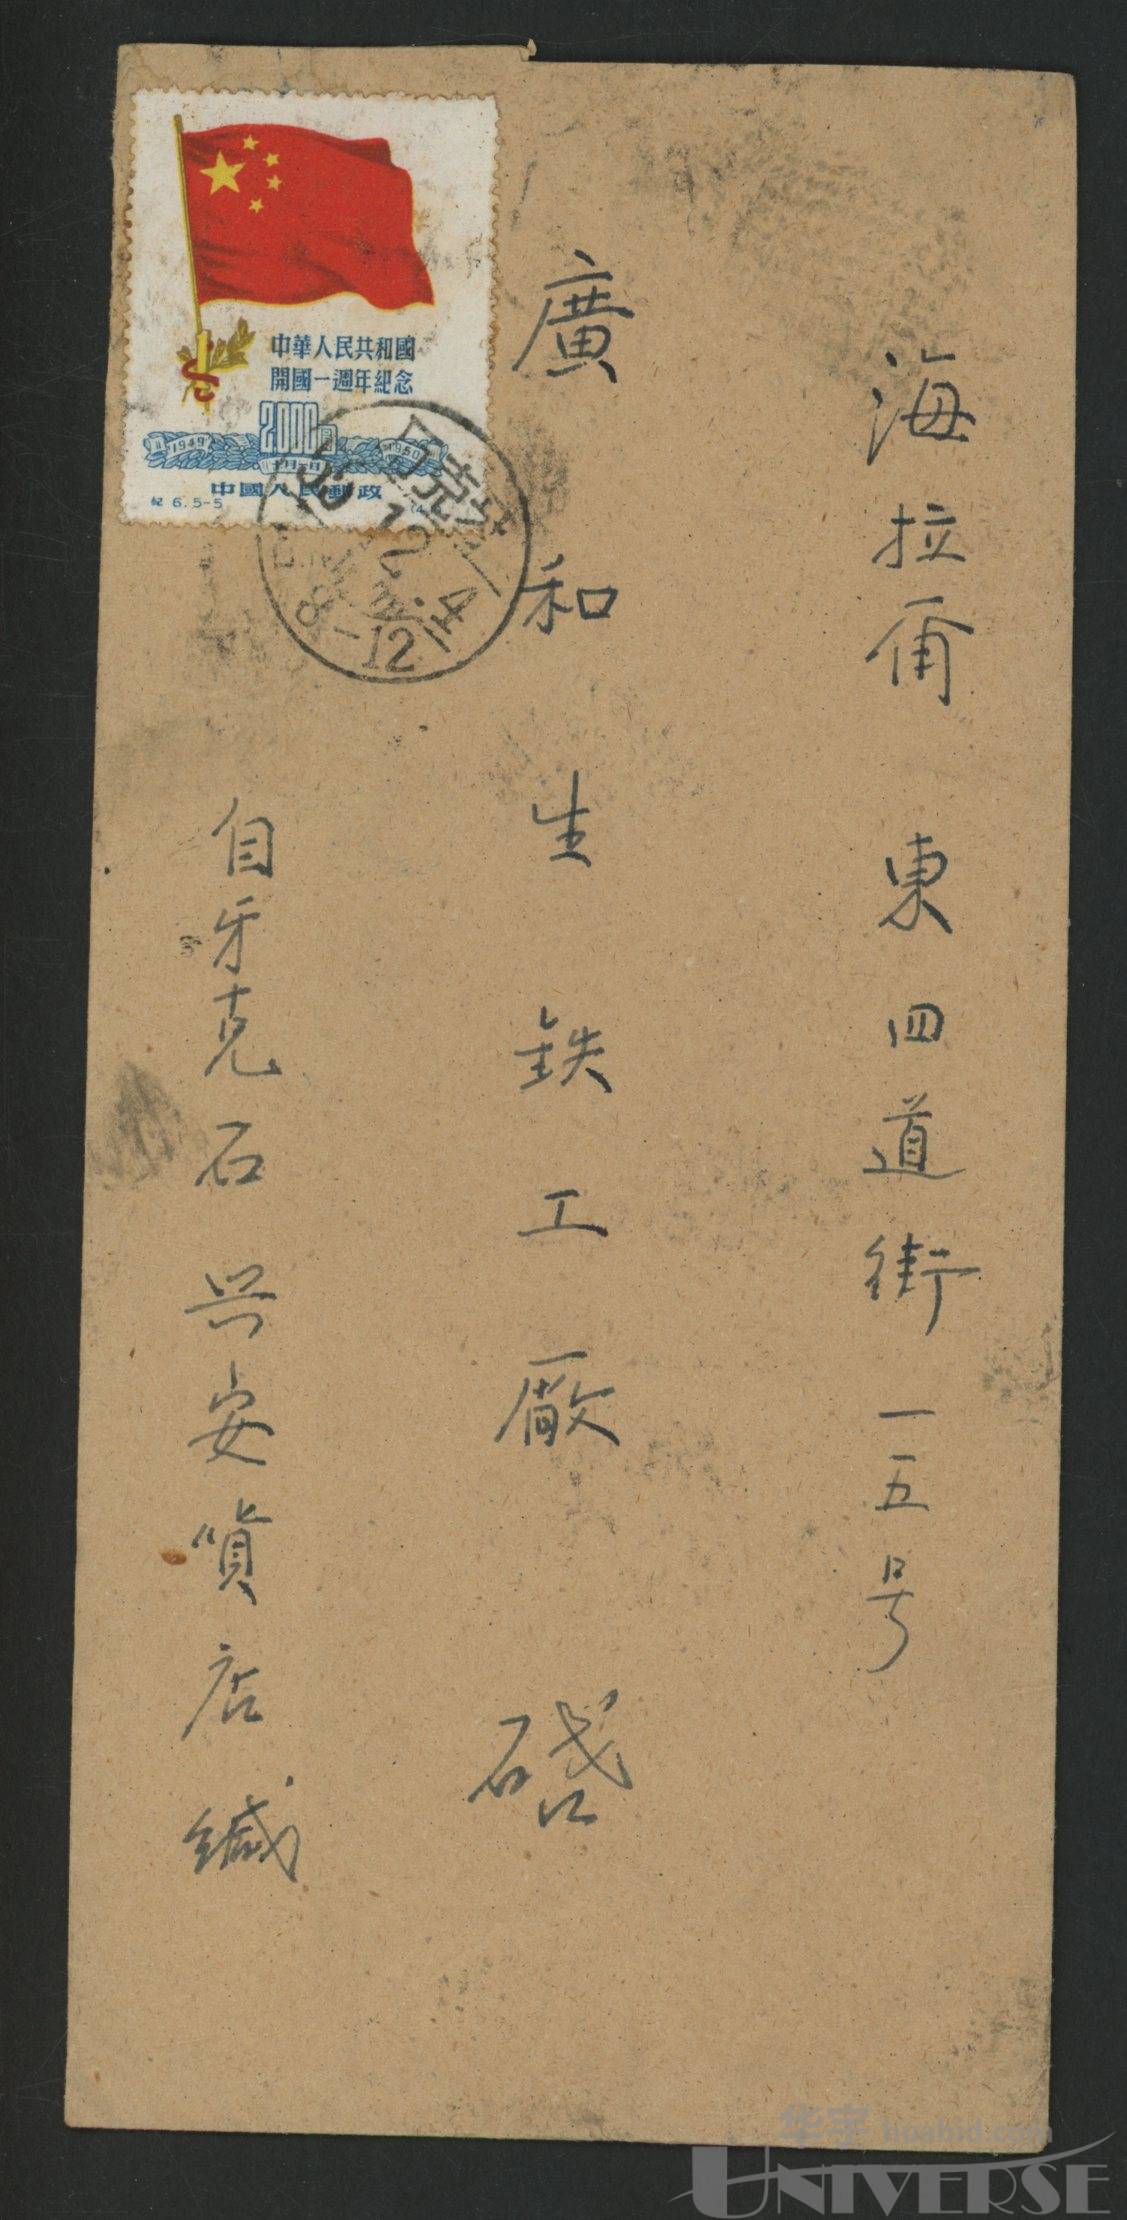 海拉爾 東四道街一五号
廣和生鉄工廠 啓
自牙克石兴安貨店 緘
中華人民共和國
開國一週年紀念
1949
2000圓
1950
十月一日
中國人民郵政
紀6.5-5
牙克石
50
12
8-12
华宇 huabid.com
UNIVERSE